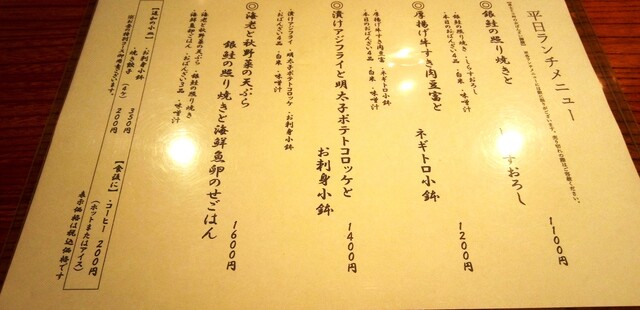 平日ランチメニュー
◎銀鮭の照り焼きと
すおろし
1100円
・銀鮭の照り焼き ・しらすおろし
・本日のおばんざい4品 ・白米 ・味噌汁
◎厚揚げ牛すき肉豆富と
ネギトロ小鉢
1200円
・厚揚げ牛すき肉豆富 ・ネギトロ小鉢
・本日のおばんざい4品 ・白米 ・味噌汁
◎漬けアジフライと明太子ポテトコロッケと
お刺身小鉢
1400円
・漬けアジフライ ・明太子ポテトコロッケ ・お刺身小鉢
・おばんざい3品 ・白米 ・味噌汁
◎海老と秋野菜の天ぷら
銀鮭の照り焼きと海鮮魚卵のせごはん
1600円
・海老と秋野菜の天ぷら ・銀鮭の照り焼き
・海鮮魚卵ごはん ・おばんざい3品 ・味噌汁
【追加の小皿】
・お刺身小鉢 350円
・焼き餃子(4ヶ) 200円
【食後に】
・コーヒー 200円
(ホットまたはアイス)
表示価格は税込価格です